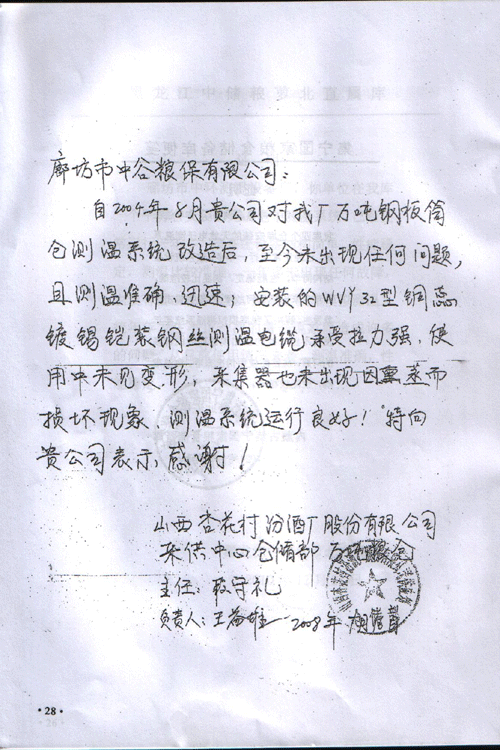 廊坊市中谷粮保有限公司：
自2004年8月贵公司对我厂万吨钢板筒
仓测温系统改造后，至今未出现任何问题，
且测温准确、迅速；安装的WVY32型铜蕊
镀锡铠装钢丝测温电缆承受拉力强，使
用中未见变形，采集器也未出现因熏蒸而
损坏现象，测温系统运行良好！特向
贵公司表示感谢！
山西杏花村汾酒厂股份有限公司
采供中心仓储部万吨粮仓
主任：守礼
负责人：王益雄 2008年
·28·